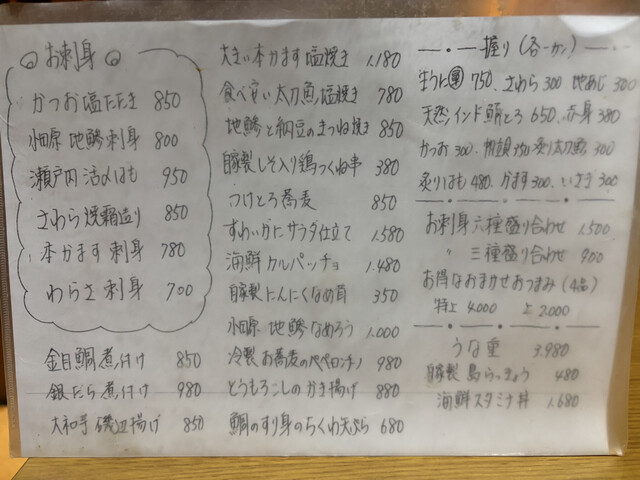 お刺身
かつお塩たたき 850
小田原 地鯵刺身 800
瀬戸内 活〆はも 950
さわら焼霜造り 850
本かます刺身 780
わらさ刺身 700
金目鯛煮付け 850
銀だら煮付け 980
大和芋 磯辺揚げ 850
大きい本かます塩焼き 1,180
食べ安い太刀魚塩焼き 780
地鯵と納豆のきつね焼き 850
自家製しそ入り鶏つくね串 380
つけとろ蕎麦 850
ずわいかにサラダ仕立て 1,580
海鮮カルパッチョ 1,480
自家製にんにくなめ茸 350
小田原 地鯵なめろう 1,000
冷製お蕎麦のペペロンチーノ 980
とうもろこしのかき揚げ 880
鯛のすり身のちくわ天ぷら 680
握り(各一カン)
生うに 750、さわら 300 地あじ 300
天然インド鮪とろ 650、赤身 380
かつお 300、炙り太刀魚 300
炙りはも 480、かます 300、いさき 300
お刺身 六種盛り合わせ 1,500
〃 三種盛り合わせ 900
お得なおまかせおつまみ(4品)
特上 4,000 上 2,000
うな重 3,980
自家製 島らっきょう 480
海鮮スタミナ丼 1,680